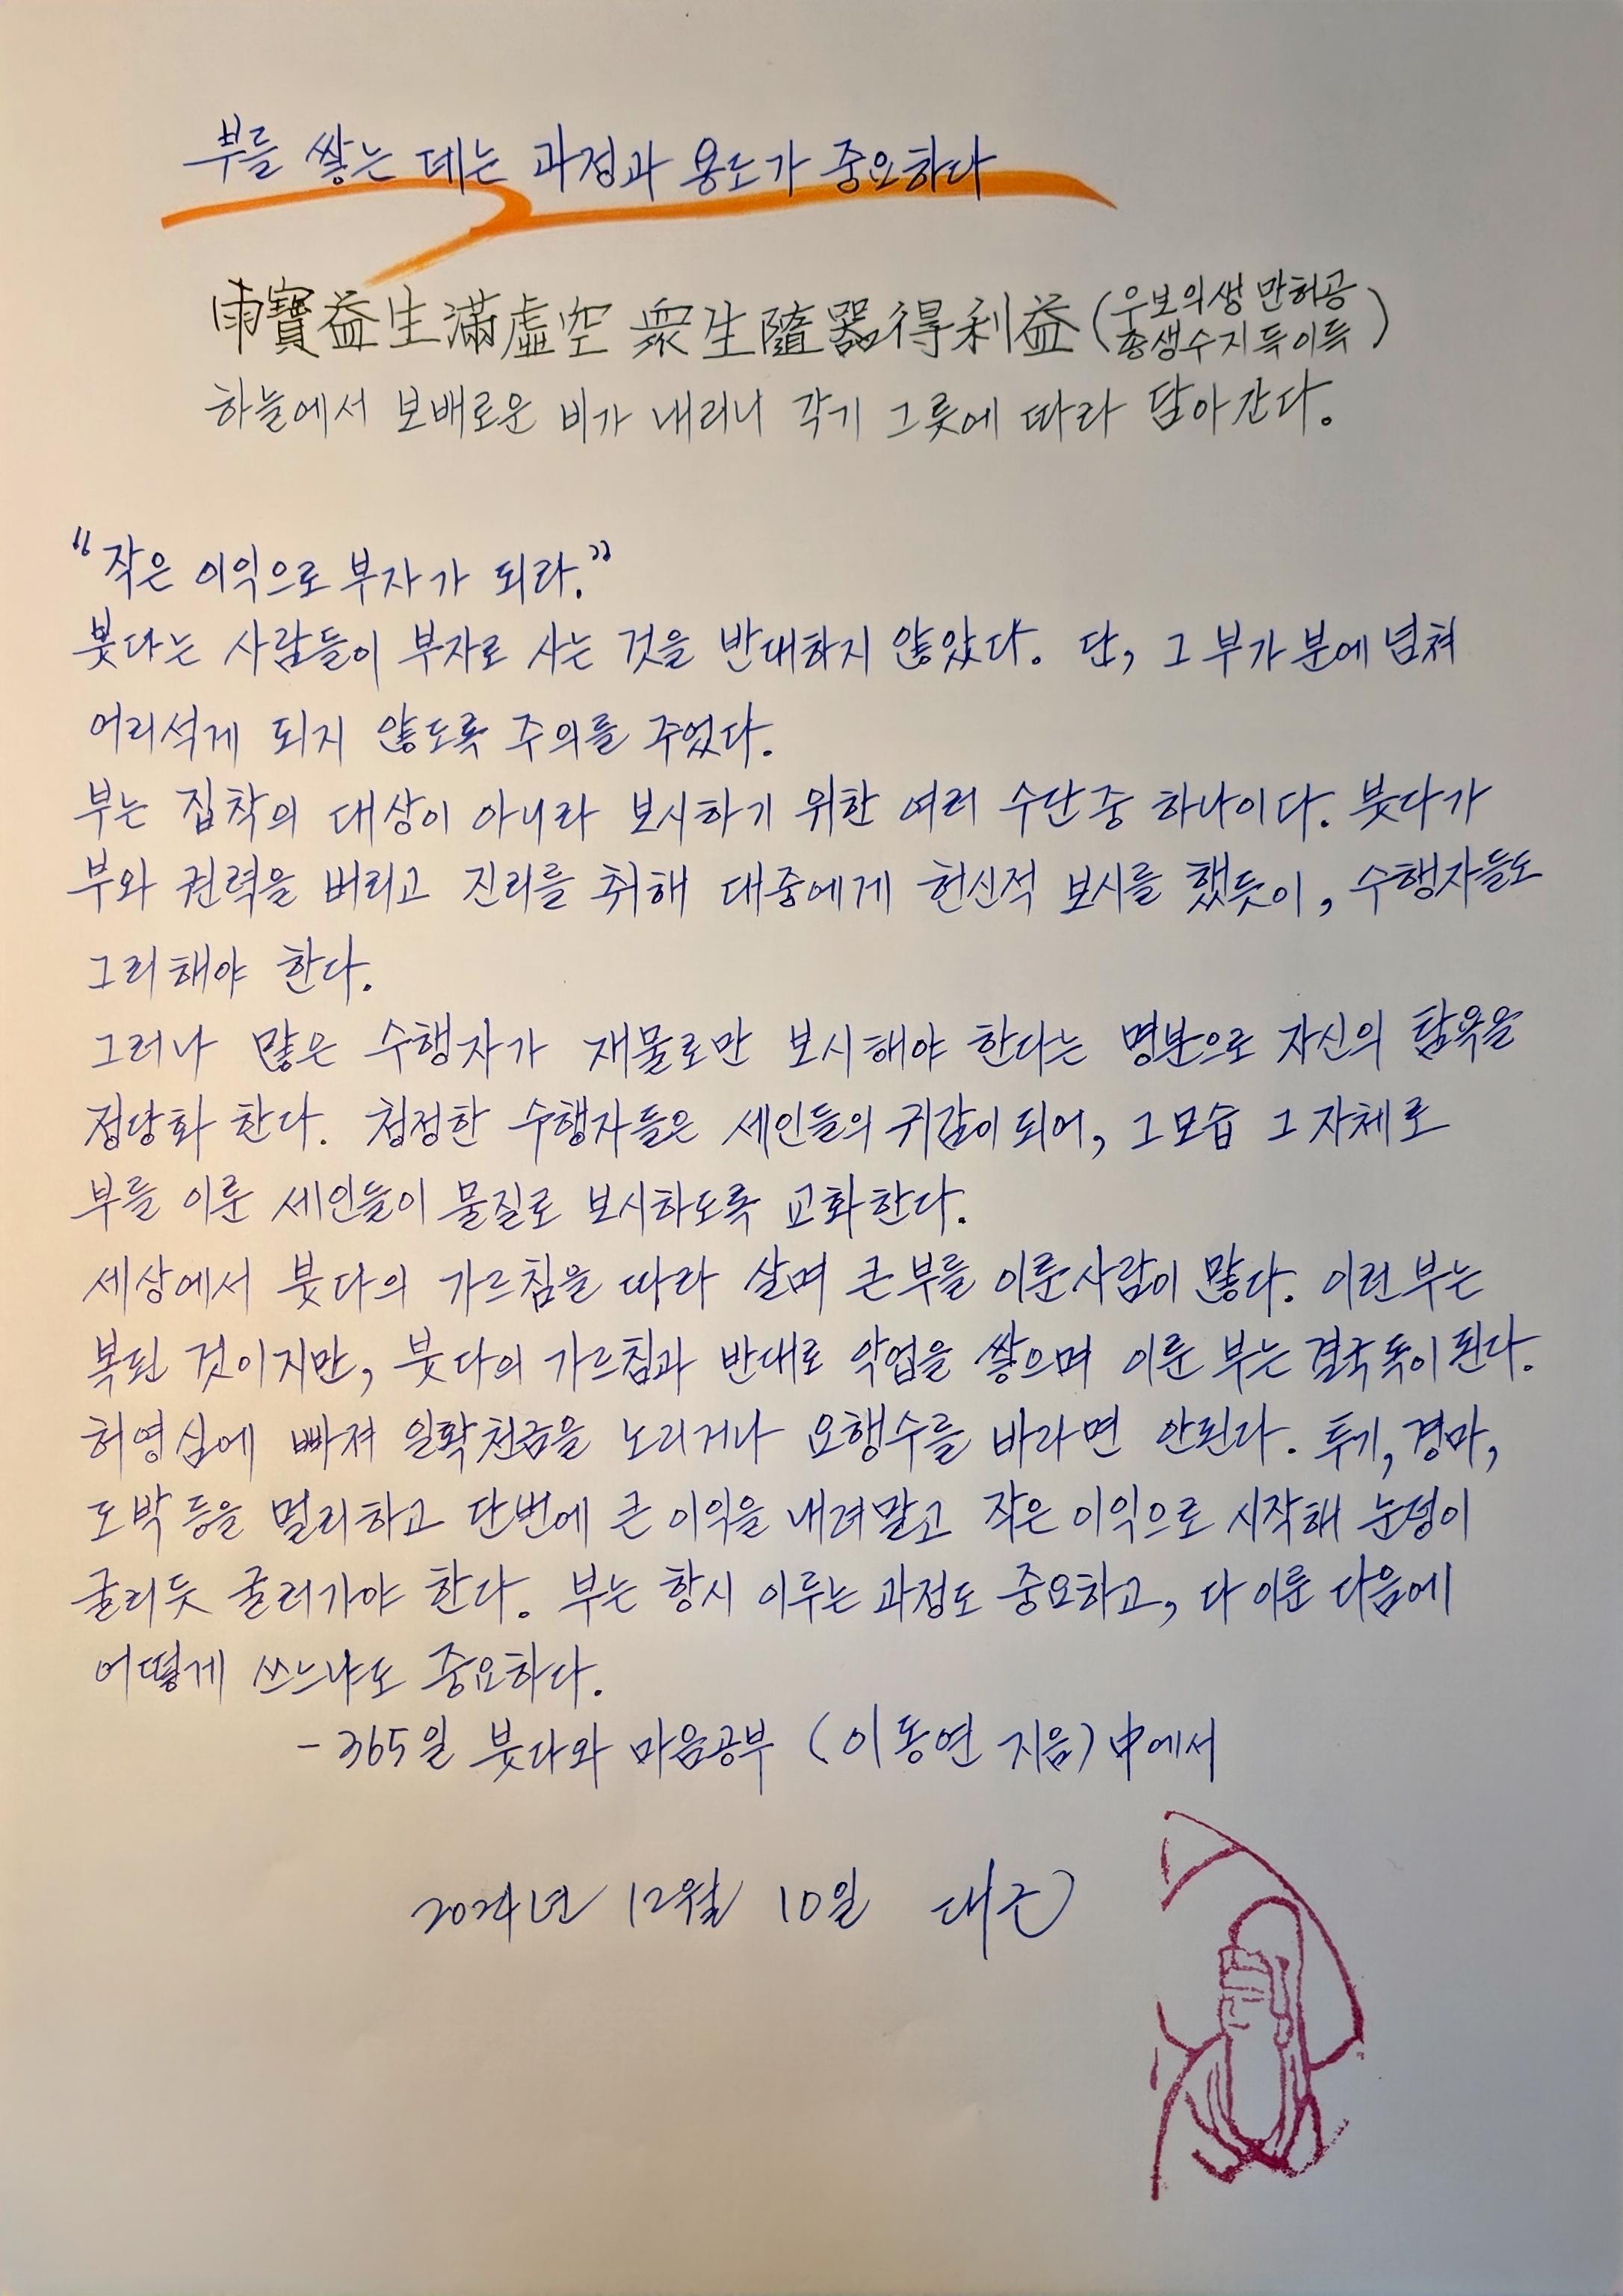 부를 쌓는 데는 과정과 용도가 중요하다
雨寶益生滿虛空 衆生隨器得利益 (우보의생 만허공
총생수지득이득)
하늘에서 보배로운 비가 내리니 각기 그릇에 따라 담아간다.
"작은 이익으로 부자가 되라."
붓다는 사람들이 부자로 사는 것을 반대하지 않았다. 단, 그 부가 분에 넘쳐
어리석게 되지 않도록 주의를 주었다.
부는 집착의 대상이 아니라 보시하기 위한 여러 수단 중 하나이다. 붓다가
부와 권력을 버리고 진리를 취해 대중에게 헌신적 보시를 했듯이, 수행자들도
그리해야 한다.
그러나 많은 수행자가 재물로만 보시해야 한다는 명분으로 자신의 탐욕을
정당화 한다. 청정한 수행자들은 세인들의 귀감이 되어, 그 모습 그 자체로
부를 이룬 세인들이 물질로 보시하도록 교화한다.
세상에서 붓다의 가르침을 따라 살며 큰 부를 이룬 사람이 많다. 이런 부는
복된 것이지만, 붓다의 가르침과 반대로 악업을 쌓으며 이룬 부는 결국 독이 된다.
허영심에 빠져 일확천금을 노리거나 요행수를 바라면 안된다. 투기, 경마,
도박 등을 멀리하고 단번에 큰 이익을 내려말고 작은 이익으로 시작해 눈덩이
굴리듯 굴러가야 한다. 부는 항시 이루는 과정도 중요하고, 다 이룬 다음에
어떻게 쓰느냐도 중요하다.
- 365일 붓다와 마음공부 (이동연 지음) 中에서
2024년 12월 10일 대근